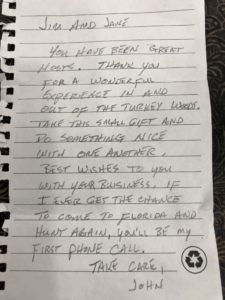 JIM AND JANE
YOU HAVE BEEN GREAT
HOSTS. THANK YOU
FOR A WONDERFUL
EXPERIENCE IN AND
OUT OF THE TURKEY WOODS.
TAKE THIS SMALL GIFT AND
DO SOMETHING NICE
WITH ONE ANOTHER.
BEST WISHES TO YOU
WITH YOUR BUSINESS. IF
I EVER GET THE CHANCE
TO COME TO FLORIDA AND
HUNT AGAIN, YOU'LL BE MY
FIRST PHONE CALL.
TAKE CARE,
JOHN